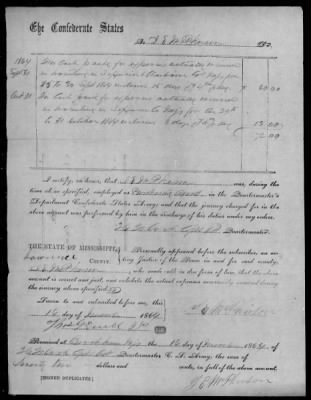 The Confederate States
To J E McPherson Dr.
1864
Sept 30
For Cash paid for expenses actually incurred
in traveling in
to 30 Sept 1864 inclusive 15 days @ $4 day $ 60.00
Oct 31
For Cash paid for expenses actually incurred
in traveling in
to 31 October 1864 inclusive 3 days @ 4 p day 12.00
72.00
I certify, on honor, that J E McPherson was, during the
time above specified, employed as Purchasing Agent in the Quartermaster's
Department Confederate States Army; and that the journey charged for in the
above account was performed by him in the discharge of his duties under my orders.
Capt & Quartermaster.
THE STATE OF MISSISSIPPI,
Lawrence County.
Personally appeared before the subscriber, an
acting Justice of the Peace in and for said county,
J E McPherson who made oath in due form of law, that the above
account is correct and just, and exhibits the actual expenses necessarily incurred during
the journey above specified.
Sworn to and subscribed before me, this
16 day of November 1864
J E McPherson
J.P.
Received at Brookhaven Miss the 16 day of November 1864, of
Capt & Quartermaster C. S. Army, the sum of
Seventy two dollars and
cents, in full of the above account.
[SIGNED DUPLICATES]
J E McPherson